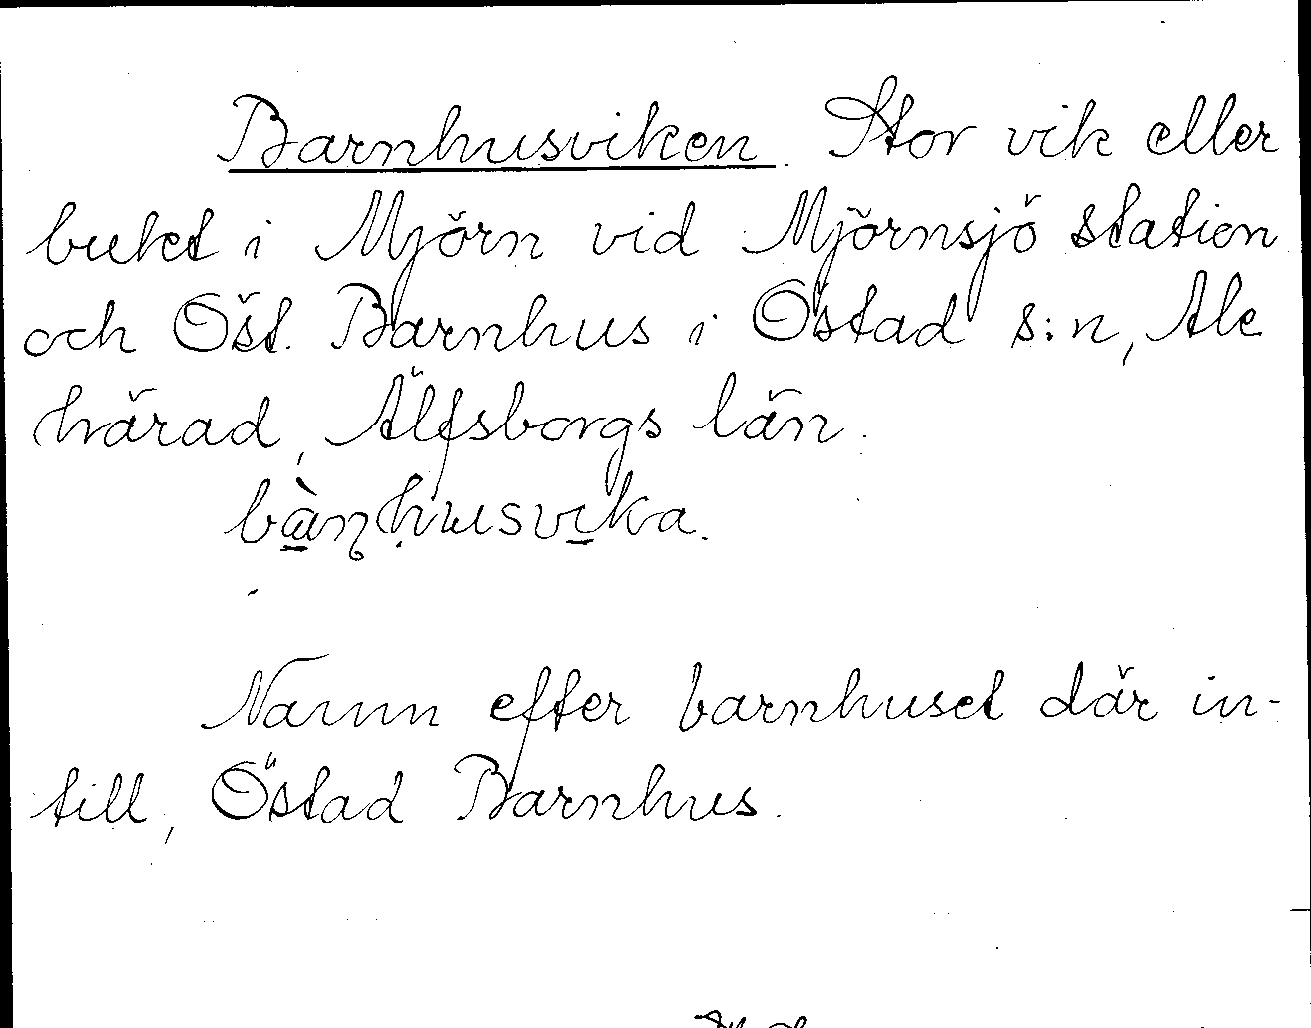 Barnhusviken. Stor vik eller
bukt i Mjörn vid Mjörnsjö station
och Öst. Barnhus i Östad s:n, Ale
härad, Älfsborgs län.
Namn efter barnhuset där in-
till, Östad Barnhus.